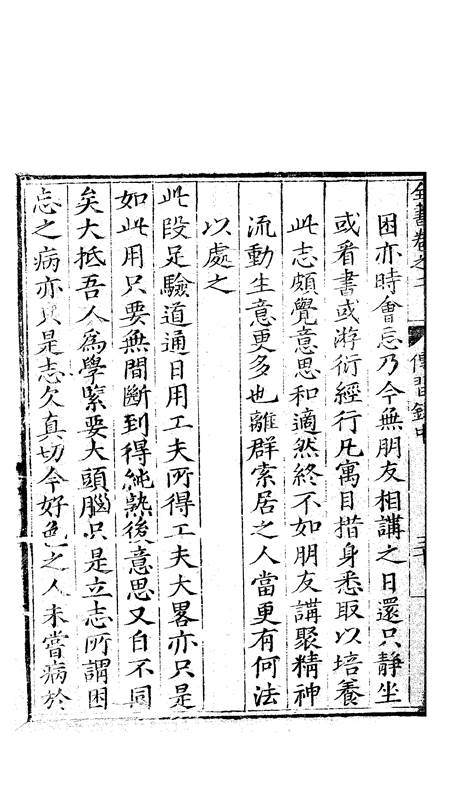 全書卷之二 傳習錄中
困亦時會忘乃今無朋友相講之日還只靜坐
或看書或游衍經行凡寓目措身悉取以培養
此志頗覺意思和適然終不如朋友講聚精神
流動生意更多也離群索居之人當更有何法
以處之
此段足驗道通日用工夫所得工夫大畧亦只是
如此用只要無間斷到得純熟後意思又自不同
矣大抵吾人為學緊要大頭腦只是立志所謂困
忘之病亦只是志欠真切今好色之人未嘗病於